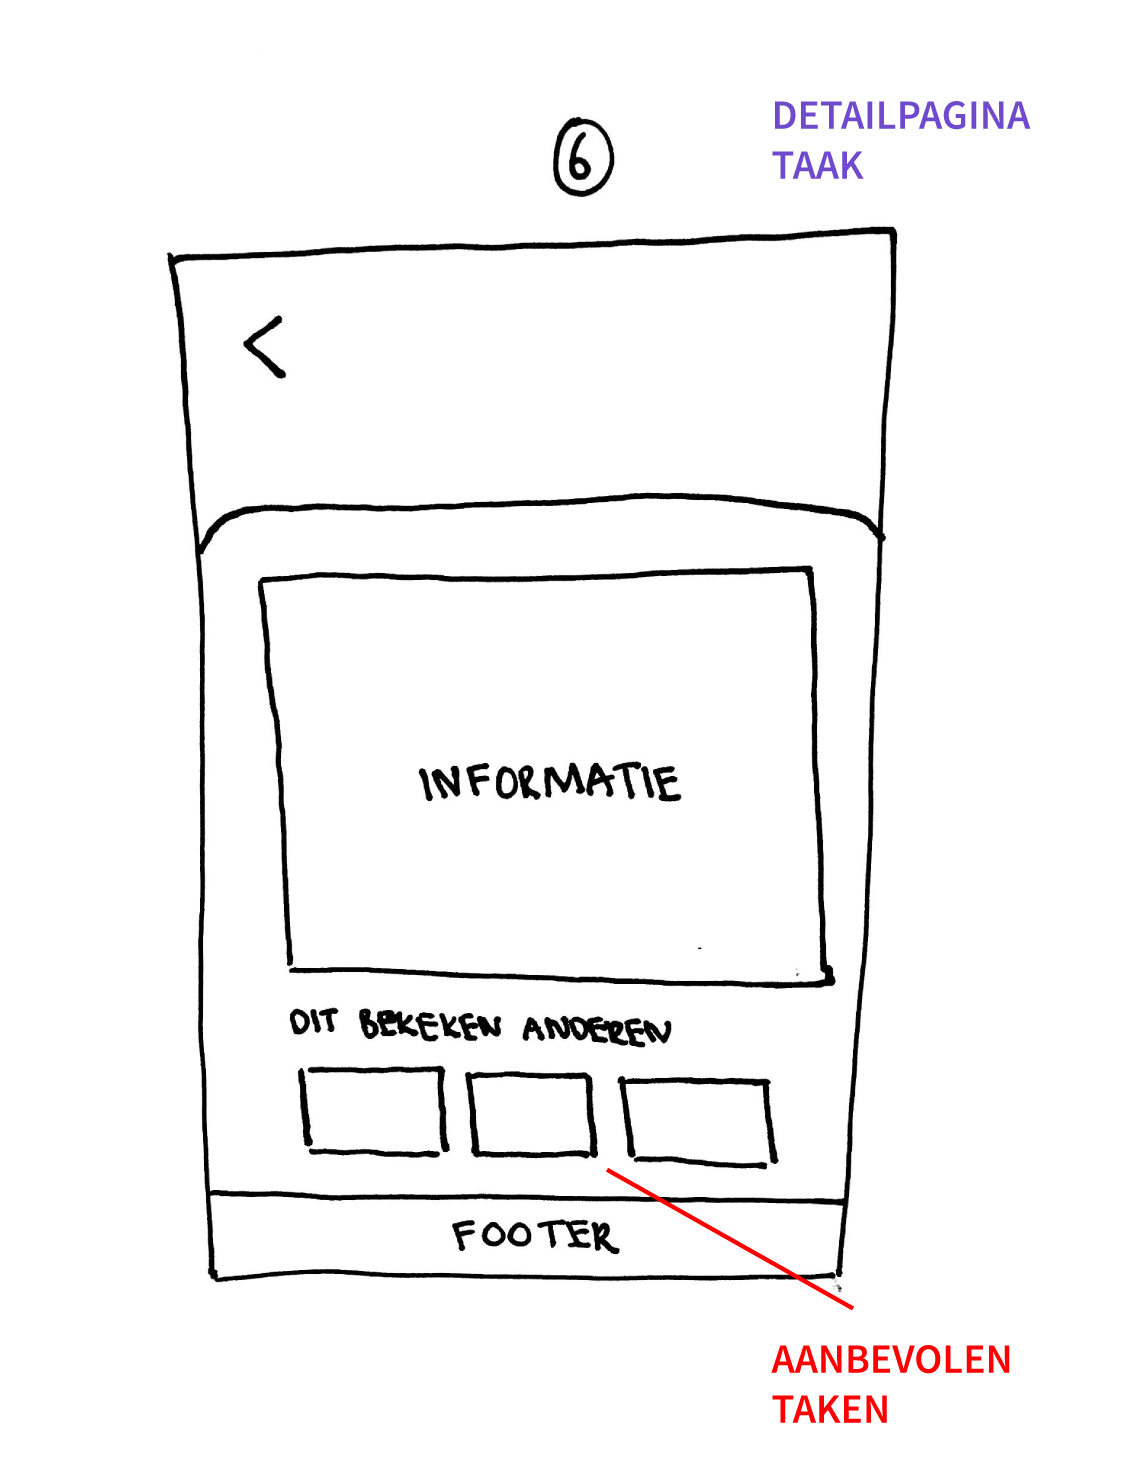 6
DETAILPAGINA
TAAK
<
INFORMATIE
DIT BEKEKEN ANDEREN
FOOTER
AANBEVOLEN
TAKEN